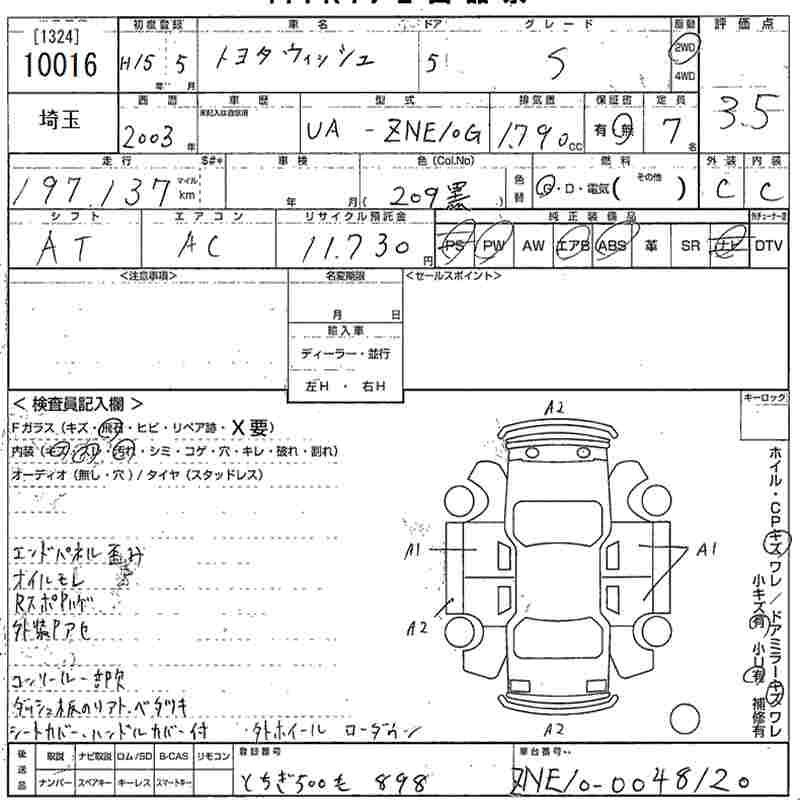 [1324]
10016
初度登録 車名 ドア グレード 駆動 評価点
H15年 5月 トヨタ ウィッシュ 5 S 2WD 4WD 3.5
埼玉
西暦 車歴 型式 排気量 保証書 定員
2003年 未記入は自家用 UA - ZNE10G 1,790cc 有・無 7名
走行 S#* 車検 色(Col.No) 燃料 外装 内装
197,137 マイル km 年 月 ( 209 黒 ) 色替 G・D・電気( その他 ) C C
シフト エアコン リサイクル預託金 純正装備品
AT AC 11,730円 PS PW AW エアB ABS 革 SR ナビ DTV
<注意事項> 名変期限 <セールスポイント>
月 日
輸入車
ディーラー・並行
左H ・ 右H
< 検査員記入欄 > キーロック
Fガラス(キズ・飛石・ヒビ・リペア跡・X要)
内装(キズ・スレ・汚れ・シミ・コゲ・穴・キレ・破れ・割れ)
オーディオ(無し・穴)/タイヤ(スタッドレス)
エンドパネル歪み
オイルモレ
RスポPハゲ
外装Pアセ
コンソール一部欠
ダッシュ板のリアト、ベタツキ
シートカバー、ハンドルカバー付 ・外ホイール ローダウン
A2
A1
A1
A2
A2
ホイル・CPキズワレ/ドアミラーキズワレ
小キズ有 小U有 補修有
後送品 取説 ナビ取説 ロム/SD B-CAS リモコン
ナンバー スペアキー キーレス スマートキー
登録番号 とちぎ500も 898
車台番号 ZNE10-0048120